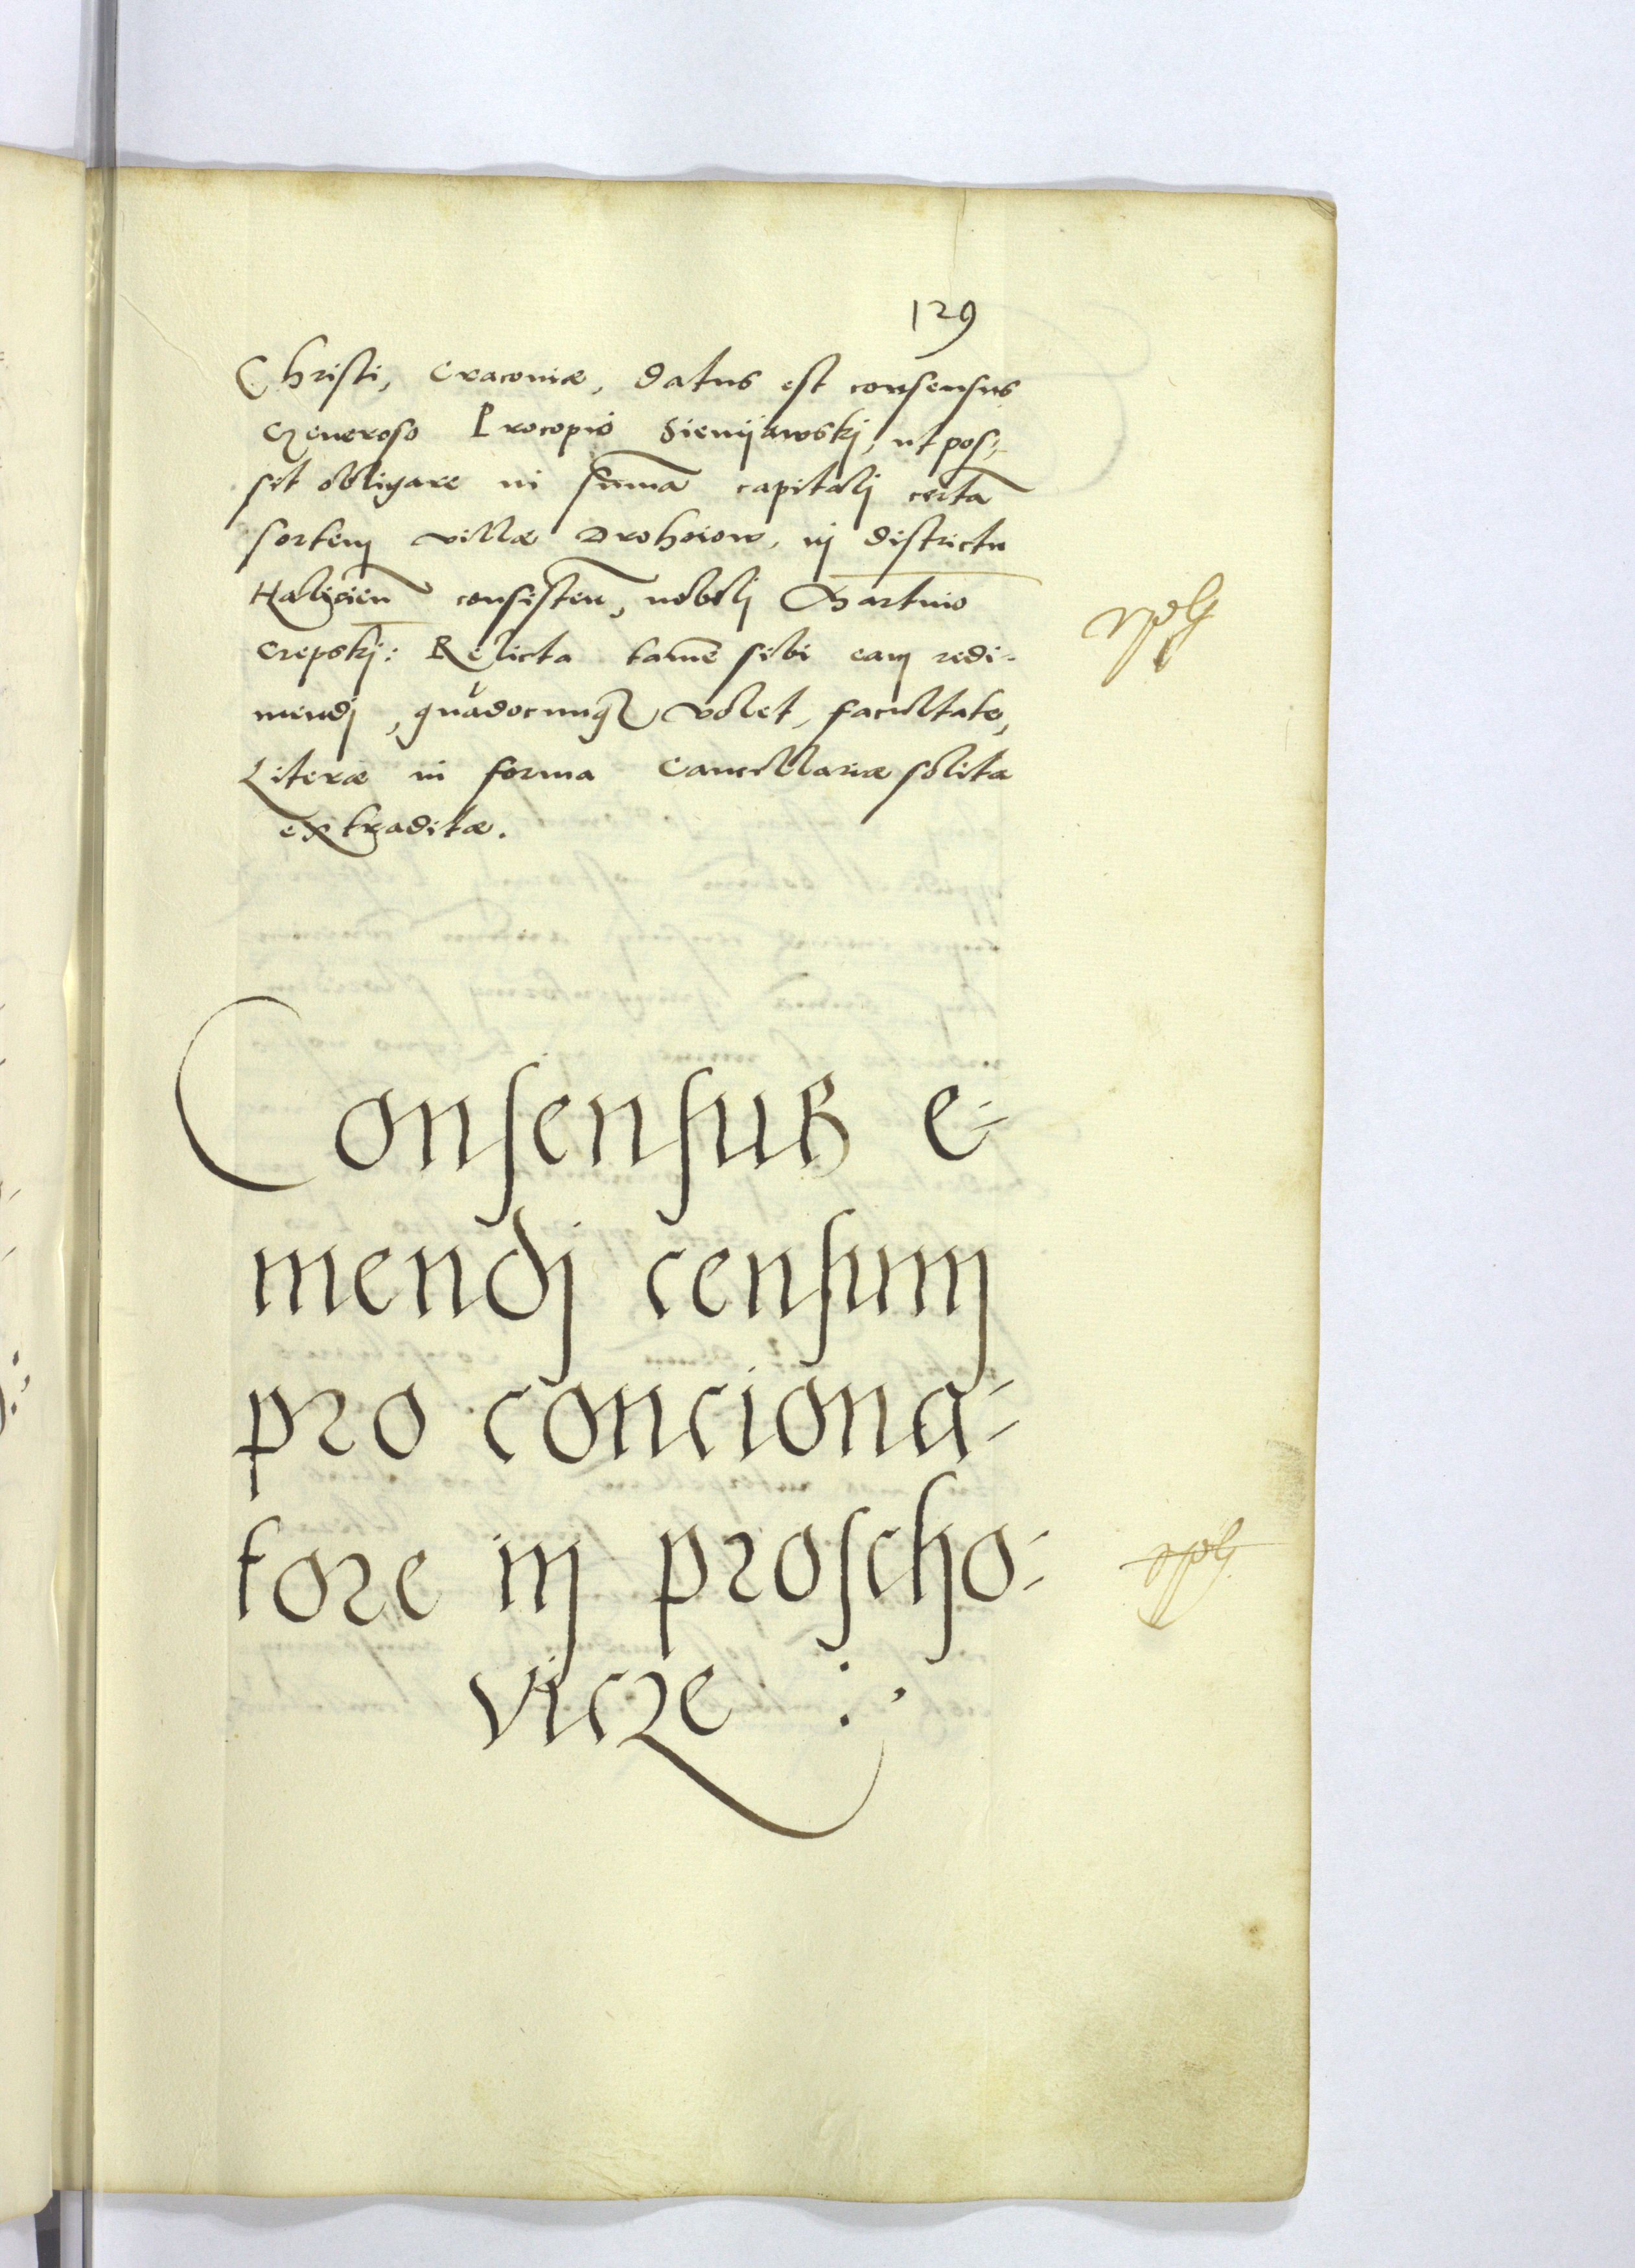 129
Christi, Cracoviæ, datus est consensus
Generoso Procopio Sienijawskj, ut pos-
sit obligare in summa capitalj certa
sortem villæ Drohoiow, in districtu
Halicien consisten, nobilj Martino
Crepskj: Relicta tamē sibi eam redi-
mendj, quādocunq volet, facultate,
Literæ in forma Cancellariæ solita
extraditæ.
Consensus e-
mendj censum
pro conciona-
tore in proscho-
vicze